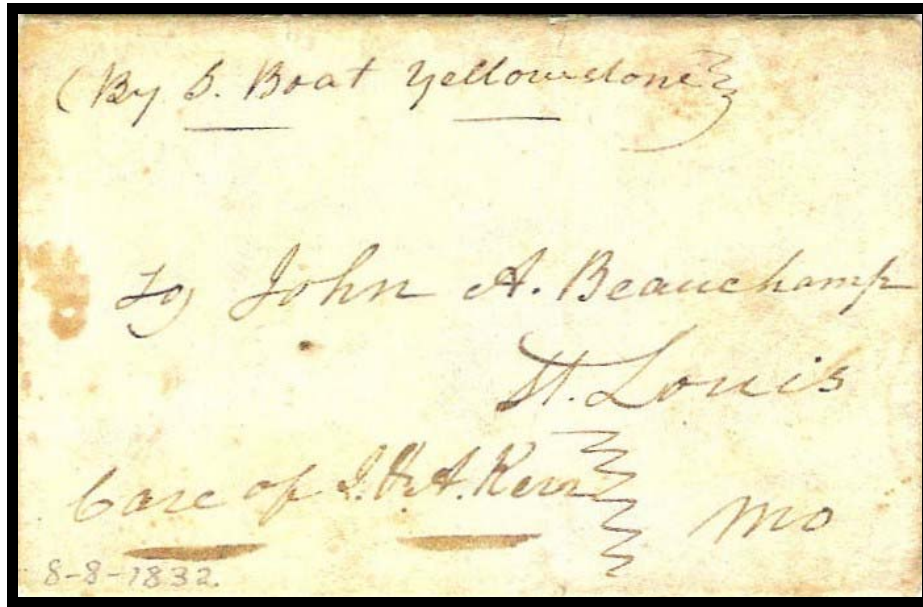 (By S. Boat Yellowstone)
To John A. Beauchamp
St. Louis
Care of J. & A. Kerr
Mo
8-8-1832.